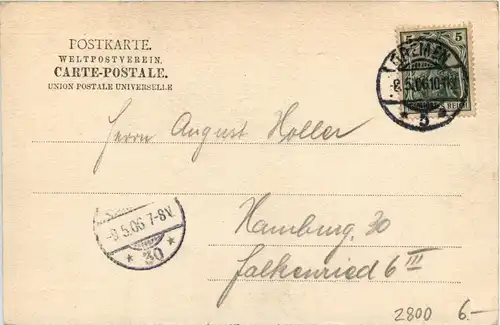 POSTKARTE.
WELTPOSTVEREIN.
CARTE-POSTALE.
UNION POSTALE UNIVERSELLE
5 5
BREMEN
-8.5.06 10-11V
* 5 *
REICH
Herrn August Holler
Hamburg, 30
Falkenried 6 III
-8.5.06 7-8V.
* 30 *
2800 6.–